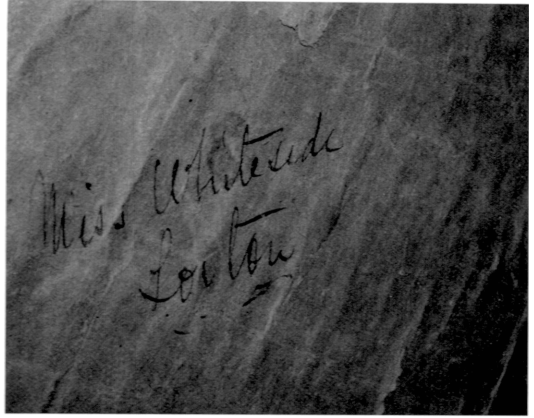 Miss Whiteside
Lorton